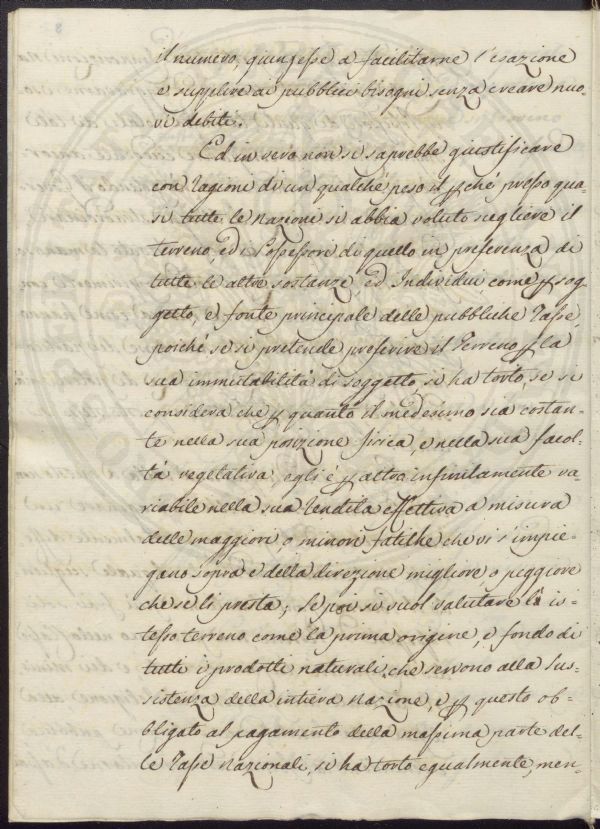 il numero, giungesse a facilitarne l'esazione
e supplire ai pubblici bisogni senza creare nuo-
vi debiti.
Ed in vero non si saprebbe giustificare
con ragioni di un qualche peso il p ché presso qua-
si tutte le Nazioni si abbia voluto scegliere il
terreno, ed i Possessori di quello in preferenza di
tutte le altre sostanze, ed Individui come p sog-
getto, e fonte principale delle pubbliche Tasse,
poiché se si pretende preferire il Terreno p la
sua immutabilità di soggetto, si ha torto, se si
considera che p quanto il medesimo sia costan-
te nella sua posizione fisica, e nella sua facol-
tà vegetativa, egli è p altro infinitamente va-
riabile nella sua rendita effettiva a misura
delle maggiori, o minori fatiche che vi s'impie-
gano sopra e della direzione migliore o peggiore
che se li presta; se poi si vuol valutare lo is-
tesso terreno come la prima origine, e fondo di
tutti i prodotti naturali, che servono alla sus-
sistenza della intiera Nazione, e p questo ob-
bligato al pagamento della massima parte del-
le Tasse Nazionali, si ha torto egualmente, men-